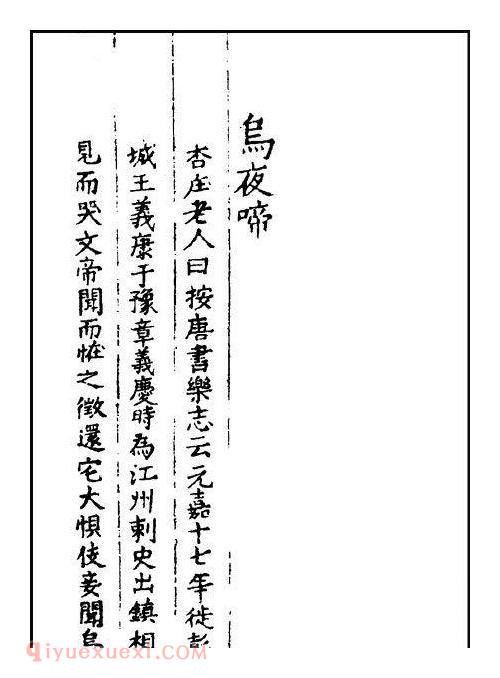 烏夜啼
杏庄老人曰按唐書樂志云元嘉十七年徙彭
城王義康于豫章義慶時為江州刺史出鎮相
見而哭文帝聞而恠之徵還宅大惧伎妾聞烏
qiyuexuexi.com